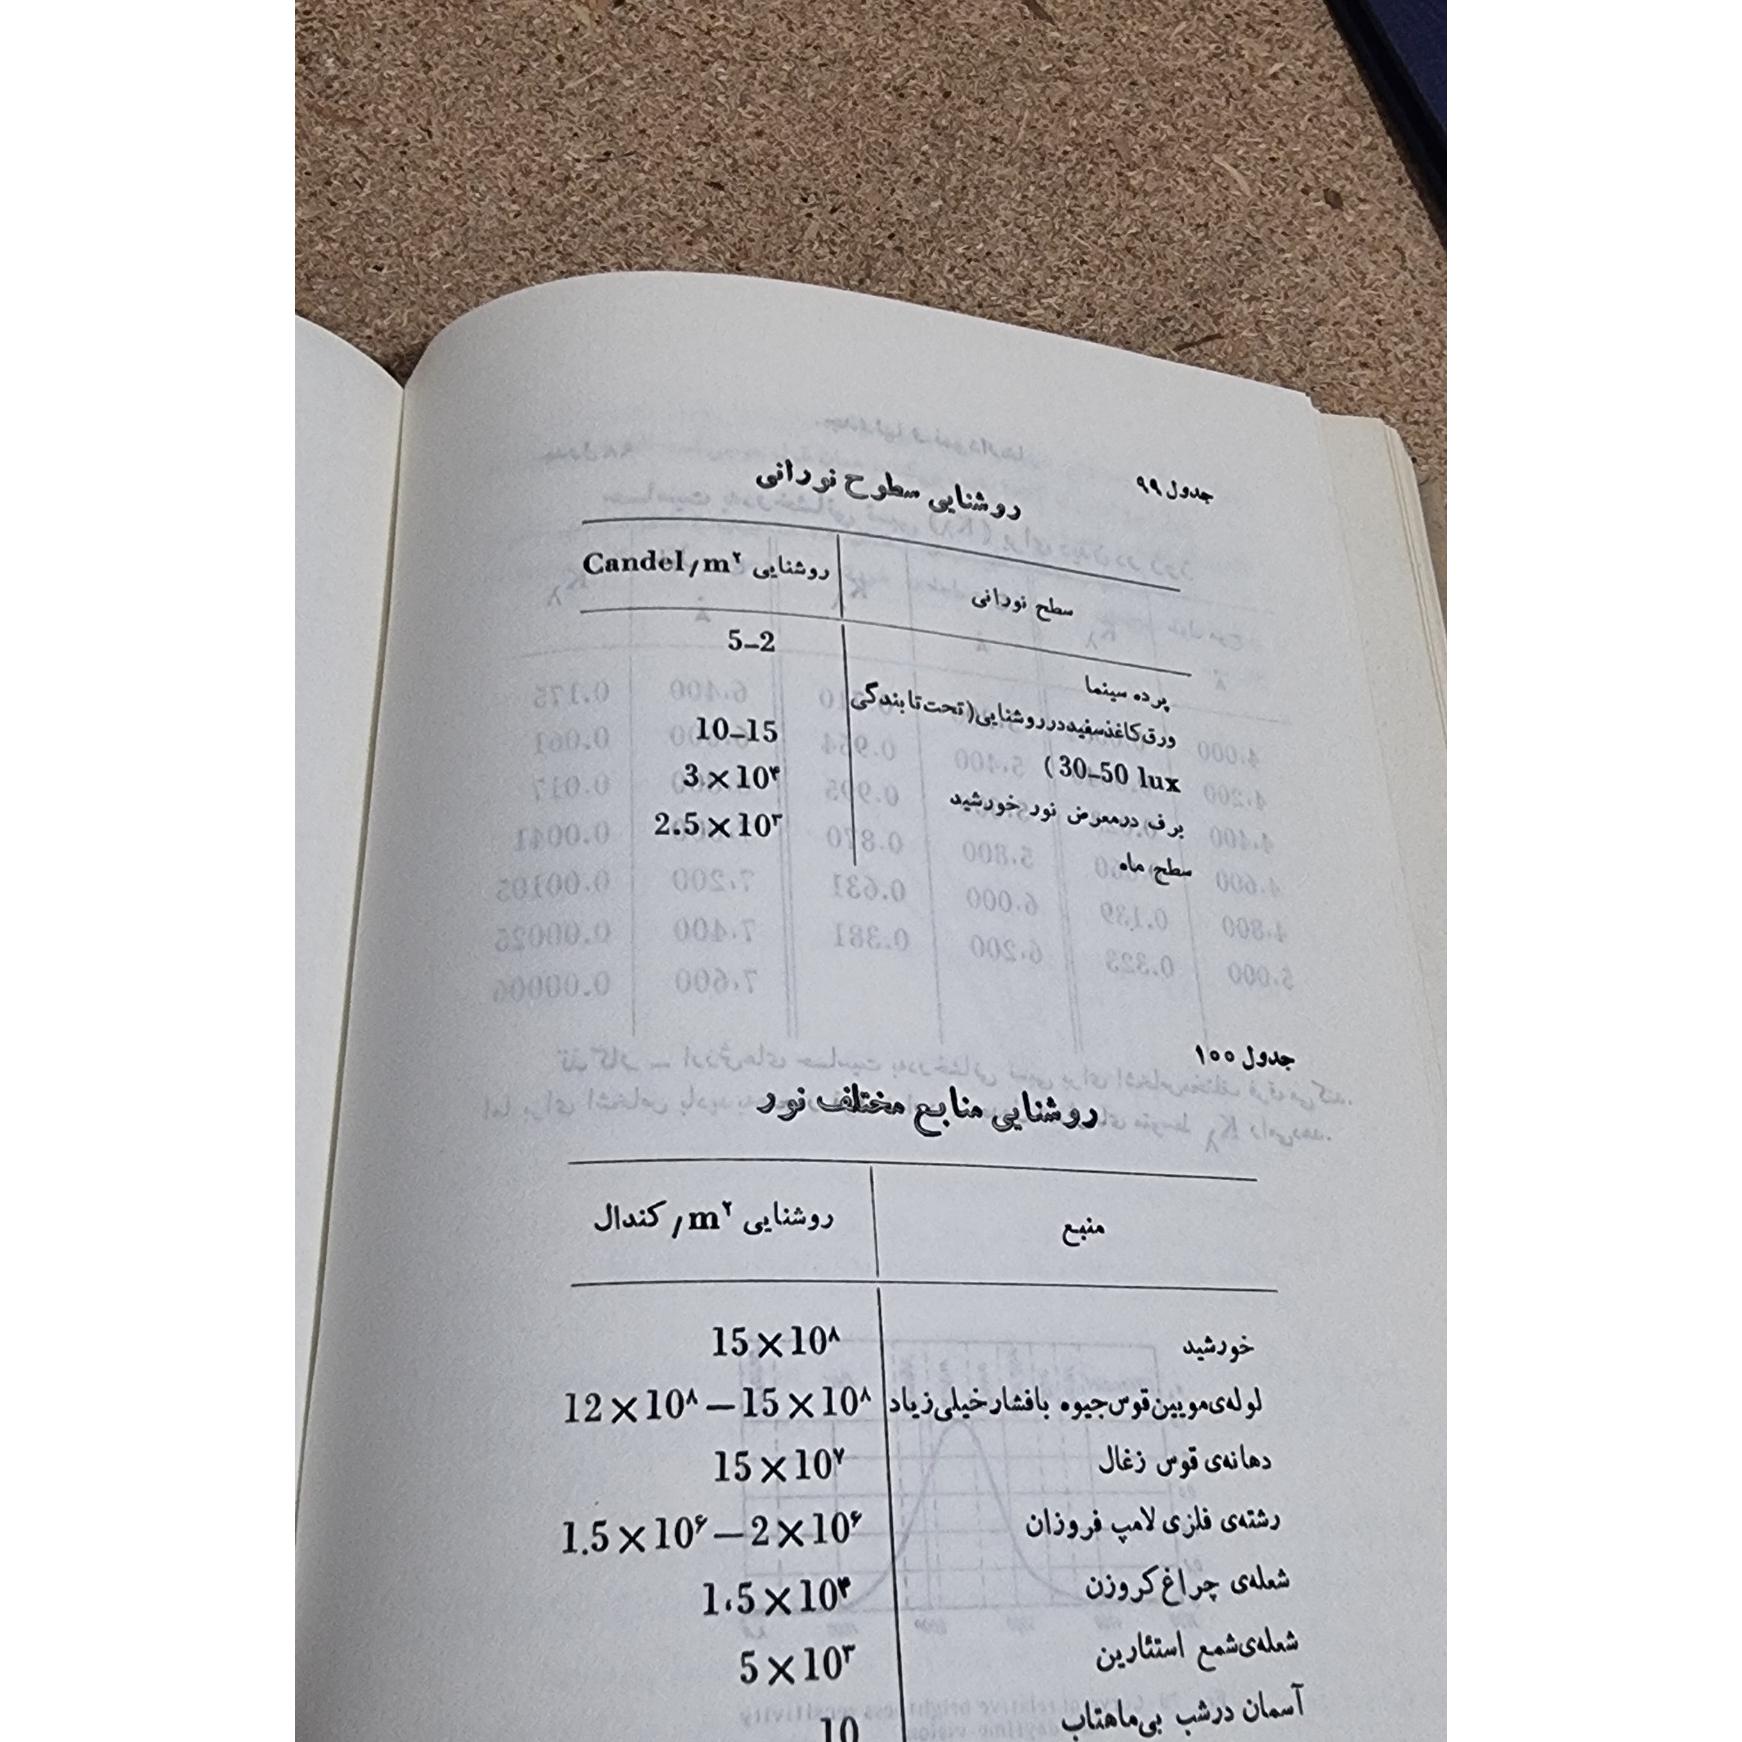 جدول ۹۹
روشنایی سطوح نورانی
سطح نورانی	روشنایی Candel/m۲
پرده سینما	5–2
ورق کاغذ سفید در روشنایی (تحت تابندگی
30–50 lux )	10–15
برف در معرض نور خورشید	3×10۴
سطح ماه	2.5×10۳
جدول ۱۰۰
روشنایی منابع مختلف نور
منبع	روشنایی کندال/m۲
خورشید	15×10۸
لوله‌ی مویین قوس جیوه با فشار خیلی زیاد	12×10۸–15×10۸
دهانه‌ی قوس زغال	15×10۷
رشته‌ی فلزی لامپ فروزان	1.5×10۶–2×10۶
شعله‌ی چراغ کروزن	1.5×10۴
شعله‌ی شمع استئارین	5×10۳
آسمان در شب بی‌ماهتاب	10